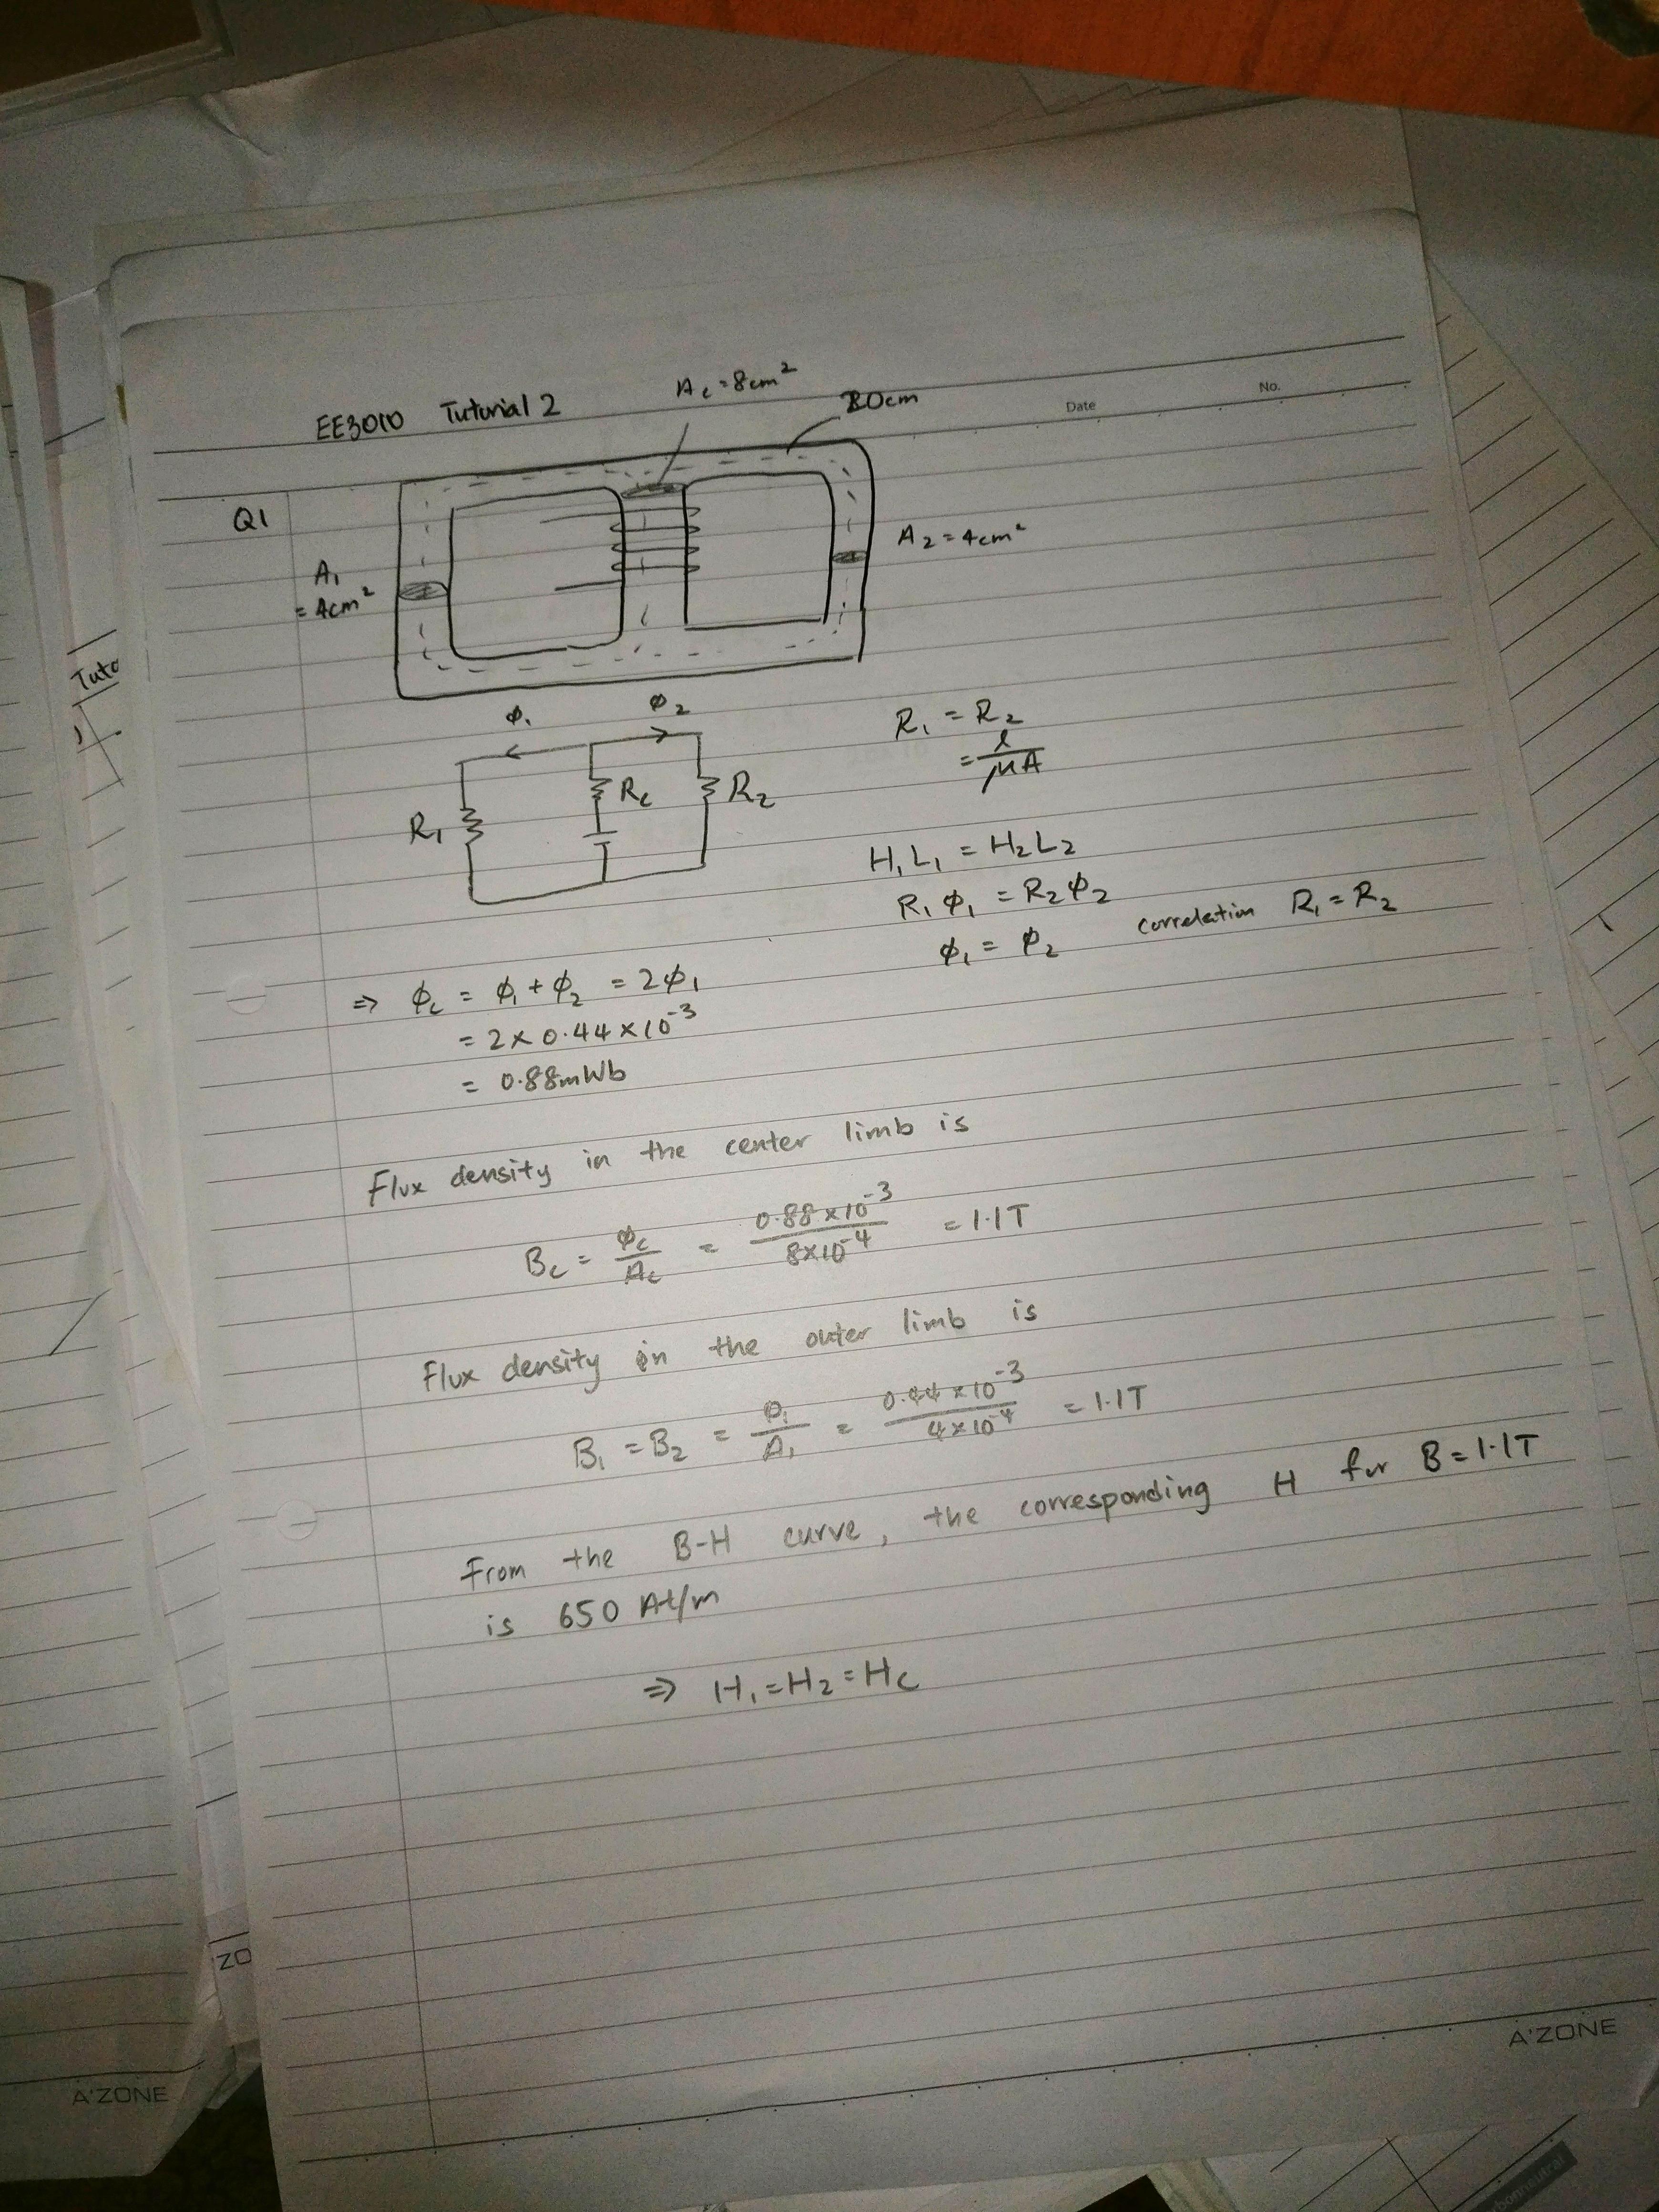 EE3010 Tutorial 2
Ac = 8cm²
20cm
Date
No.
Q1
A₁
= 4cm²
A₂ = 4cm²
Tuto
1)
Φ₁
Φ₂
R₁
Rc
R₂
R₁ = R₂
= l/μA
H₁L₁ = H₂L₂
R₁Φ₁ = R₂Φ₂
Φ₁ = Φ₂ correlation R₁ = R₂
⇒ Φc = Φ₁ + Φ₂ = 2Φ₁
= 2 × 0.44 × 10⁻³
= 0.88mWb
Flux density in the center limb is
Bc = Φc/Ac = 0.88 × 10⁻³/8×10⁻⁴ = 1.1T
Flux density in the outer limb is
B₁ = B₂ = Φ₁/A₁ = 0.44 × 10⁻³/4×10⁻⁴ = 1.1T
From the B-H curve, the corresponding H for B = 1.1T
is 650 At/m
⇒ H₁ = H₂ = Hc
ZO
A'ZONE
A'ZONE